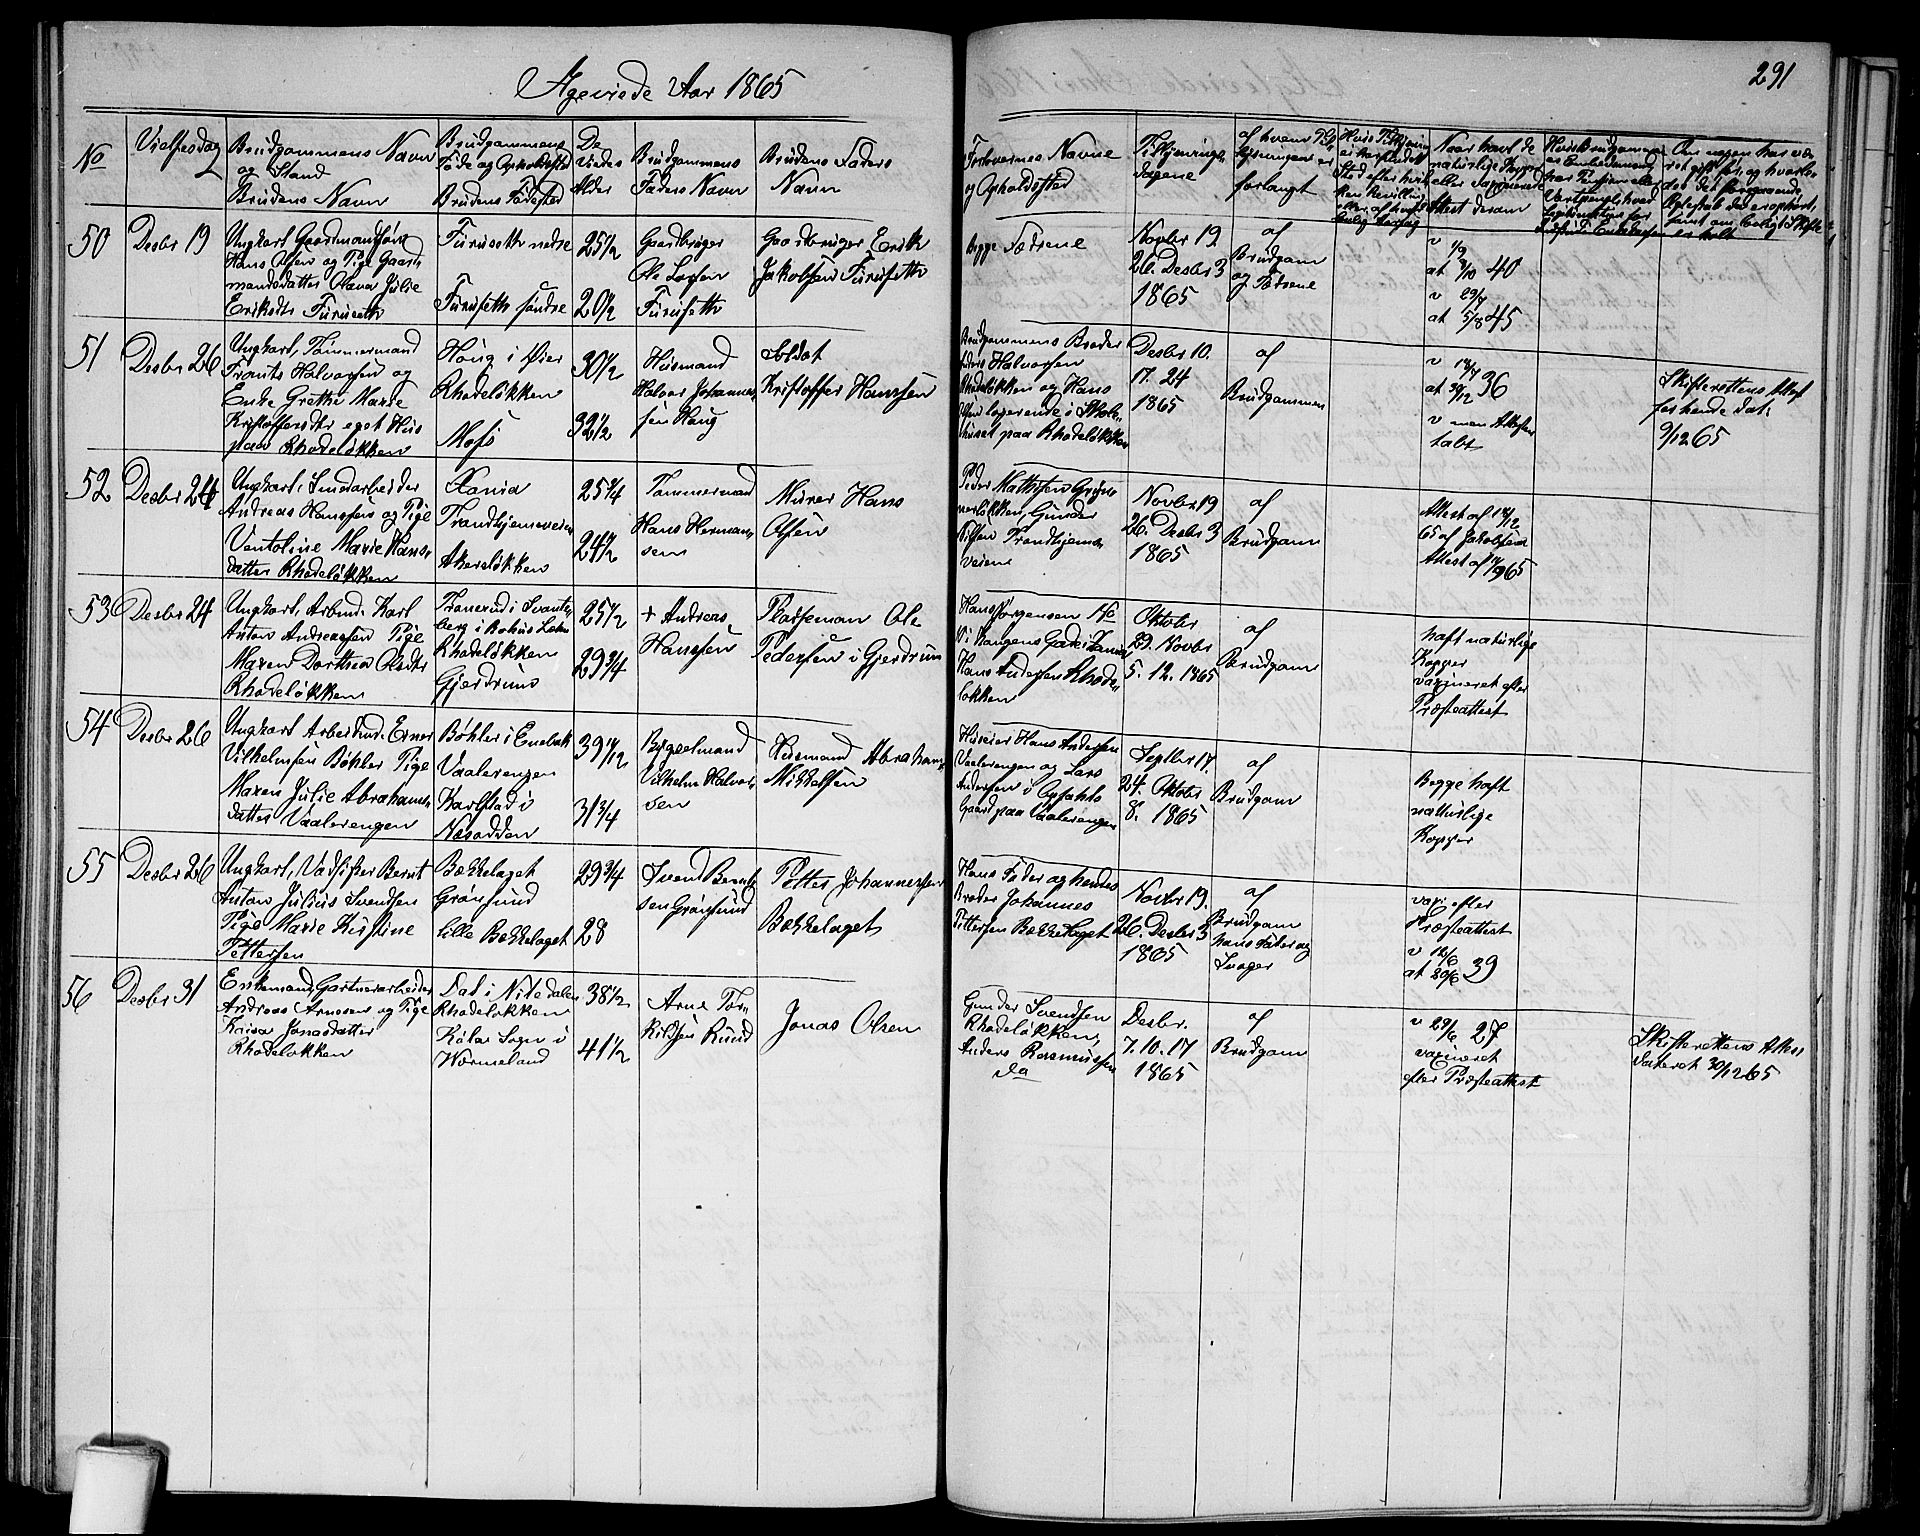 Ægeviede Aar 1865
291
No
Vielsesdag
Brudgommens Navn
og Stand
Brudens Navn
Brudgommens
Føde og Opholdssted
Brudens Fødested
De
Viedes
Alder
Brudgommens
Faders Navn
Brudens Faders
Navn
Forlovernes Navne
og Opholdssted
Tillysnings
Dagene
af hvem Til
lysningen er
forlangt
Naar havt de
naturlige Kopper
eller Vaxinerede
Attest derom
Om nogen har væ
ret gift før, og hvorle
des det foregaaende
Ægteskab da er ophørt,
samt om lovligt Skifte
er holdt
50
Desbr 19
Ungkarl Gaardmandssøn
Hans Olsen og Pige Gaard
mandsdatter Olava Julie
Eriksdtr Furuseth
Furuseth nedre
Furuseth søndre
25 1/2
20 1/2
Gaardbruger
Ole Larsen
Furuseth
Gaardbruger Erik
Jakobsen Furuseth
Begge Fædrene
Novbr 19.
26. Desbr 3
1865
af
Brudgom
og Fædrene
v 1/9
at 8/10 40
v 29/7
at 5/8 45
51
Desbr 26
Ungkarl, Tømmermand
Frants Halvorsen og
Enke Grethe Marie
Kristoffersdtr eget Hus
paa Rhodeløkken
Houg i Øier
Rhodeløkken
Moss
30 1/2
32 1/2
Husmand
Halvor Johannes
sen Haug
Soldat
Kristoffer Hanssen
Brudgommens Broder
Halvorsen
Rhodeløkken og Hans
logerende i Skole
huset paa Rhodeløkken
Desbr 10.
17. 24
1865
af
Brudgommen
v 18/7
at 30/12 36
v men Attesten
tabt
Skifterettens Attest
for hende dat.
9/12 65
52
Desbr 24
Ungkarl, Smedarbeider
Andreas Hanssen og Pige
Ventoline Marie Hans
datter Rhodeløkken
Xania
Trondhjemsveien
Akersløkken
25 3/4
24 1/2
Tømmermand
Hans Herman
sen
Murer Hans
Olsen
Peder Mathisen Grüne
løkken, Gunder
Nilsen Trondhjems
veiene
Novbr 19
26. Desbr 3
1865
af
Brudgom
Attest af 18/12
65 af Jakobsen
Attest af 19/9 65
53
Desbr 24
Ungkarl, Arbmd. Karl
Anton Andreassen Pige
Maren Dorthea Olsdtr
Rhodeløkken
Tranerud i Svante
berg i Bohus Læhn
Rhodeløkken
Gjerdrum
25 1/2
29 3/4
+ Andreas
Hanssen
Pladsemand Ole
Pedersen i Gjerdrum
Hans Jørgensen No
Hans Andersen Rhode
løkken
Oktober
29. Novbr
5. 12. 1865
af
Brudgom
haft naturlige
Kopper
vaxineret efter
Præsteattest
54
Desbr 26
Ungkarl Arbeidmd. Erner
Vilhelmsen Bøhler Pige
Maren Julie Abrahams
datter Vaalerengen
Bøhler i Enebak
Vaalerengen
Karlstad i
Næsodden
39 11/12
31 3/4
Bygselmand
Vilhelm Halvor
sen
Husmand Abraham
Mikkelsen
Huseier Hans Andersen
Vaalerengen og Lars
Andersen i
Gaard paa Vaalerengen
Septbr 17.
24. Oktober
8. 1865
af
Brudgom
Begge haft
naturlige
Kopper
55
Desbr 26
Ungkarl, Vadfisker Bernt
Anton Julius Svendsen
Pige Marie Kirstine
Pettersen
Bækkelaget
Grønsund
lille Bækkelaget
29 3/4
28
Svend Bernt
sen Grønsund
Petter Johannessen
Bækkelaget
Hans Fader og hendes
Broder Johannes
Pettersen Bækkelaget
Novbr 19.
26. Desbr 3
1865
af
Brudgom
hans Fader og
Svoger
vaxi efter
Præsteattest
v 12/6
at 20/6 39
56
Desbr 31
Enkemand, Gartnerarbeider
Andreas Arnesen og Pige
Kaisa Jonasdatter
Rhodeløkken
Dal i Nitedalen
Rhodeløkken
Køla Sogn i
Wærmeland
38 1/2
41 1/2
Arne Tor
kildsen Rund
Jonas Olsen
Gunder Svendsen
Rhodeløkken,
Anders Rasmussen
da
Desbr.
7. 10. 17
1865
af
Brudgom
v 29/6 27
vaxineret
efter Præsteattest
Skifterettens Attest
dateret 30/12 65